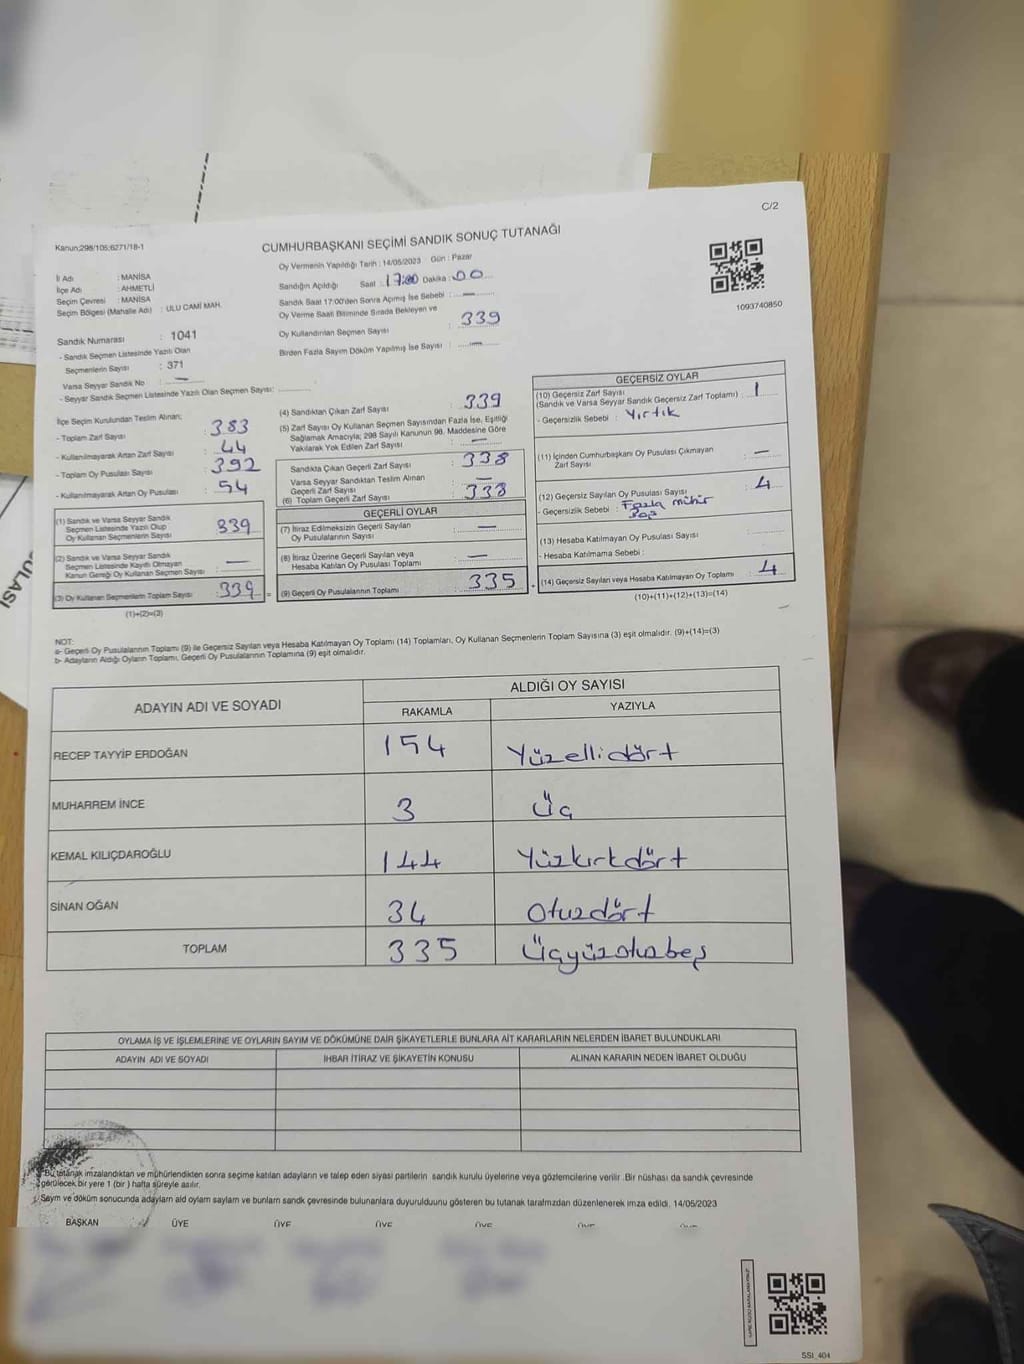 C/2
Kanun:298/105;6271/18-1
CUMHURBAŞKANI SEÇİMİ SANDIK SONUÇ TUTANAĞI
İl Adı : MANİSA
İlçe Adı : AHMETLİ
Seçim Çevresi : MANİSA
Seçim Bölgesi (Mahalle Adı) : ULU CAMİ MAH.
Oy Vermenin Yapıldığı Tarih : 14/05/2023 Gün : Pazar
Sandığın Açıldığı Saat : 17:00 Dakika : 00
Sandık Saat 17:00'den Sonra Açımış İse Sebebi : —
Oy Verme Saati Bitiminde Sırada Bekleyen ve
Oy Kullandırılan Seçmen Sayısı : 339
Birden Fazla Sayım Döküm Yapılmış İse Sayısı : —
1093740850
Sandık Numarası : 1041
- Sandık Seçmen Listesinde Yazılı Olan
Seçmenlerin Sayısı : 371
Varsa Seyyar Sandık No : —
- Seyyar Sandık Seçmen Listesinde Yazılı Olan Seçmen Sayısı:
İlçe Seçim Kurulundan Teslim Alınan;
- Toplam Zarf Sayısı : 383
- Kullanılmayarak Artan Zarf Sayısı : 44
- Toplam Oy Pusulası Sayısı : 392
- Kullanılmayarak Artan Oy Pusulası : 54
(1) Sandık ve Varsa Seyyar Sandık
Seçmen Listesinde Yazılı Olup
Oy Kullanan Seçmenlerin Sayısı : 339
(2) Sandık ve Varsa Seyyar Sandık
Seçmen Listesinde Kayıtlı Olmayan
Kanun Gereği Oy Kullanan Seçmen Sayısı : —
(3) Oy Kullanan Seçmenlerin Toplam Sayısı : 339 =
(1)+(2)=(3)
(4) Sandıktan Çıkan Zarf Sayısı : 339
(5) Zarf Sayısı Oy Kullanan Seçmen Sayısından Fazla İse, Eşitliği
Sağlamak Amacıyla; 298 Sayılı Kanunun 98. Maddesine Göre
Yakılarak Yok Edilen Zarf Sayısı : —
Sandıkta Çıkan Geçerli Zarf Sayısı : 338
Varsa Seyyar Sandıktan Teslim Alınan
Geçerli Zarf Sayısı : —
(6) Toplam Geçerli Zarf Sayısı : 338
GEÇERLİ OYLAR
(7) İtiraz Edilmeksizin Geçerli Sayılan
Oy Pusulalarının Sayısı : —
(8) İtiraz Üzerine Geçerli Sayılan veya
Hesaba Katılan Oy Pusulası Toplamı : —
(9) Geçerli Oy Pusulalarının Toplamı : 335
GEÇERSİZ OYLAR
(10) Geçersiz Zarf Sayısı
(Sandık ve Varsa Seyyar Sandık Geçersiz Zarf Toplamı) : 1
- Geçersizlik Sebebi : Yırtık
(11) İçinden Cumhurbaşkanı Oy Pusulası Çıkmayan
Zarf Sayısı : —
(12) Geçersiz Sayılan Oy Pusulası Sayısı : 4
- Geçersizlik Sebebi : Fazla mühür
(13) Hesaba Katılmayan Oy Pusulası Sayısı :
- Hesaba Katılmama Sebebi :
(14) Geçersiz Sayılan veya Hesaba Katılmayan Oy Toplamı : 4
(10)+(11)+(12)+(13)=(14)
NOT:
a- Geçerli Oy Pusulalarının Toplamı (9) ile Geçersiz Sayılan veya Hesaba Katılmayan Oy Toplamı (14) Toplamları, Oy Kullanan Seçmenlerin Toplam Sayısına (3) eşit olmalıdır. (9)+(14)=(3)
b- Adayların Aldığı Oyların Toplamı, Geçerli Oy Pusulalarının Toplamına (9) eşit olmalıdır.
ADAYIN ADI VE SOYADI ALDIĞI OY SAYISI
RAKAMLA YAZIYLA
RECEP TAYYİP ERDOĞAN 154 Yüzellidört
MUHARREM İNCE 3 Üç
KEMAL KILIÇDAROĞLU 144 Yüzkırkdört
SİNAN OĞAN 34 Otuzdört
TOPLAM 335 Üçyüzotuzbeş
OYLAMA İŞ VE İŞLEMLERİNE VE OYLARIN SAYIM VE DÖKÜMÜNE DAİR ŞİKAYETLERLE BUNLARA AİT KARARLARIN NELERDEN İBARET BULUNDUKLARI
ADAYIN ADI VE SOYADI İHBAR İTİRAZ VE ŞİKAYETİN KONUSU ALINAN KARARIN NEDEN İBARET OLDUĞU
Bu tutanak imzalandıktan ve mühürlendikten sonra seçime katılan adayların ve talep eden siyasi partilerin sandık kurulu üyelerine veya gözlemcilerine verilir .Bir nüshası da sandık çevresinde
görülecek bir yere 1 (bir ) hafta süreyle asılır.
Sayım ve döküm sonucunda adayların ald oyların sayların ve bunların sandk çevresinde bulunanlara duyurulduunu gösteren bu tutanak tarafımzdan düzenlenerek imza edildi. 14/05/2023
BAŞKAN ÜYE ÜYE ÜYE ÜYE ÜYE ÜYE
SSI_404
ULASI